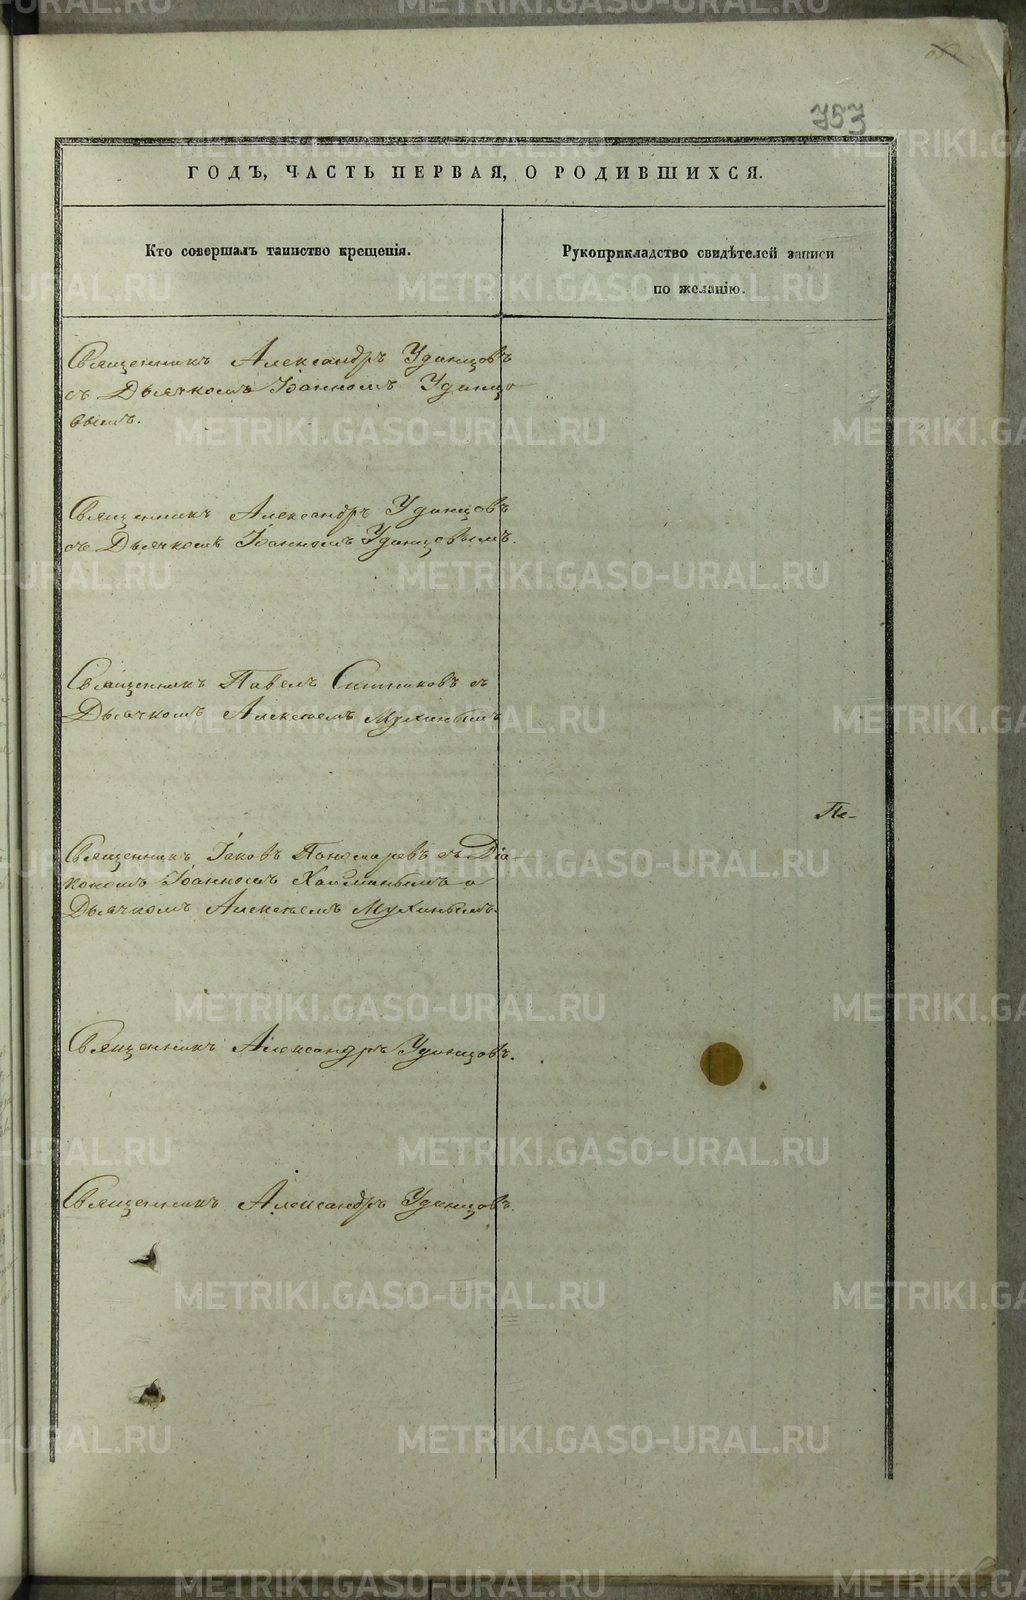 753
ГОДЪ, ЧАСТЬ ПЕРВАЯ, О РОДИВШИХСЯ.
Кто совершалъ таинство крещенія.
Рукоприкладство свидѣтелей записи
по желанію.
Священникъ Александръ Удинцовъ
съ Дьячкомъ Іоанномъ Удинцо
вымъ.
Священникъ Александръ Удинцовъ
съ Дьячкомъ Іоанномъ Удинцовымъ.
Священникъ Павелъ Ситниковъ съ
Дьячкомъ Алексѣемъ Мухинымъ
Пе-
Священникъ Іаковъ Пономаревъ съ Діа-
кономъ Іоанномъ и
Дьячкомъ Алексѣемъ Мухинымъ.
Священникъ Александръ Удинцовъ.
Священникъ Александръ Удинцовъ.
METRIKI.GASO-URAL.RU